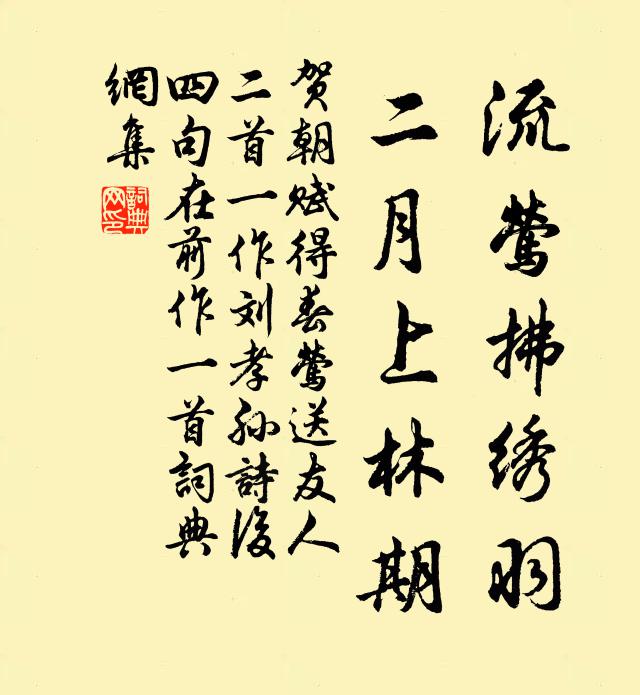 流莺拂绣羽
二月上林期
贺朝赋得春莺送友人
二首一作刘孝孙詩後
四句在前作一首詞典
網集
詞典
网印